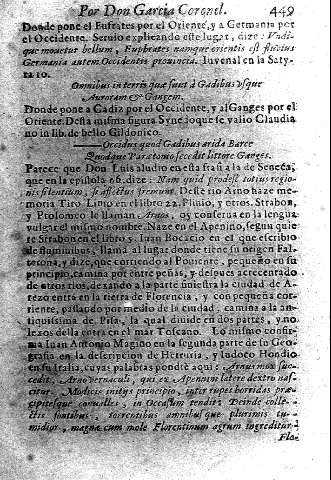 Por Don Garcia Coronel. 449
Donde pone el Eufrates por el Oriente, y a Germania por
el Occidente. Seruio explicando este lugar, dize: Vndi-
que mouetur bellum, Euphrates namque orientis est fluuius
Germania autem Occidentis prouincia. Iuuenal en la Saty-
ra 10.
Omnibus in terris quæ sunt à Gadibus vsque
Auroram & Gangem.
Donde pone a Cadiz por el Occidente, y al Ganges por el
Oriente. Desta misma figura Synedoque se valio Claudia
no in lib. de bello Gildonico.
Occidus quod Gadibus arida Barce
Quodque Parætonio secedit littore Ganges.
Parece que Don Luis aludio en esta frasi a la de Seneca,
que en la epistola 56. dize: Nam quid prodest totius regio-
nis silentium, si affectus fremunt. Deste rio Arno haze me-
moria Tito Liuio en el libro 22. Plinio, y otros. Strabon,
y Ptolomeo le llaman Arnos, oy conserua en la lengua
vulgar el mismo nombre. Naze en el Apenino, segun quie
re Strabon en el libro y Iuan Bocacio en el que escribio
de fluminibus, llama al lugar donde tiene su origen Fal-
terona, y dize, que corriendo al Poniente, pequeño en su
principio, camina por entre peñas, y despues acrecentado
de otros rios, dexando a la parte siniestra la ciudad de A-
rezo entra en la tierra de Florencia, y con pequena cor-
riente, passando por medio de la ciudad, camina a la an-
tiquissima de Pisa, la qual diuide en dos partes, y no
lexos della entra en el mar Toscano. Lo mismo confir-
ma Iuan Antonio Magino en la segunda parte de su Geo-
grafia en la descripcion de Hetruria, y Iudoco Hondio
en su Italia, cuyas palabras pondrè aqui: Arnus mox suc-
cedit, Arno vernaculi, qui ex Apennini latere dextro nas-
citur. Modicis initijs principio, inter rupes horridas præ-
cipitesque conualles, in Occasum tendit: Deinde colle-
ctis fontibus, torrentibus amnibusque plurimis tu-
midior, magna cum mole Florentinum agrum ingreditur
Flo-